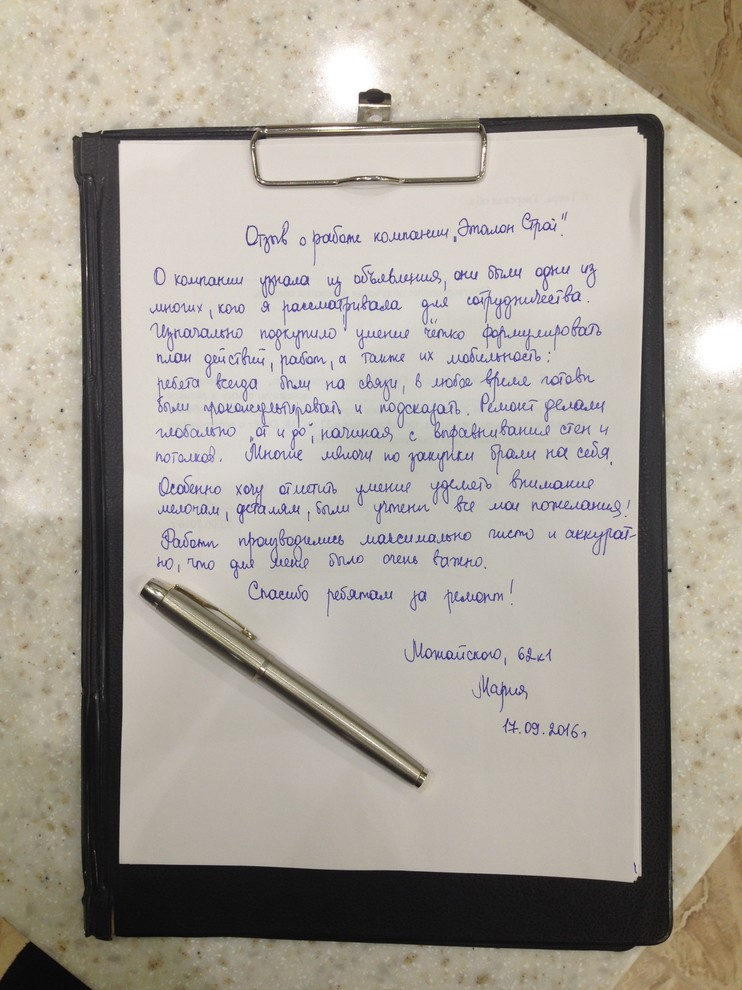 Отзыв о работе компании „Эталон Строй".
О компании узнала из объявления, они были одни из
многих, кого я рассматривала для сотрудничества.
Изначально подкупило умение чётко формулировать
план действий, работ, а также их мобильность:
ребята всегда были на связи, в любое время готовы
были проконсультировать и подсказать. Ремонт делали
глобально „от и до", начиная с выравнивания стен и
потолков. Многие мелочи по закупки брали на себя.
Особенно хочу отметить умение уделять внимание
мелочам, деталям, были учтены все мои пожелания!
Работы производились максимально чисто и аккурат-
но, что для меня было очень важно.
Спасибо ребятам за ремонт!
Можайского, 62к1
Мария
17.09.2016г